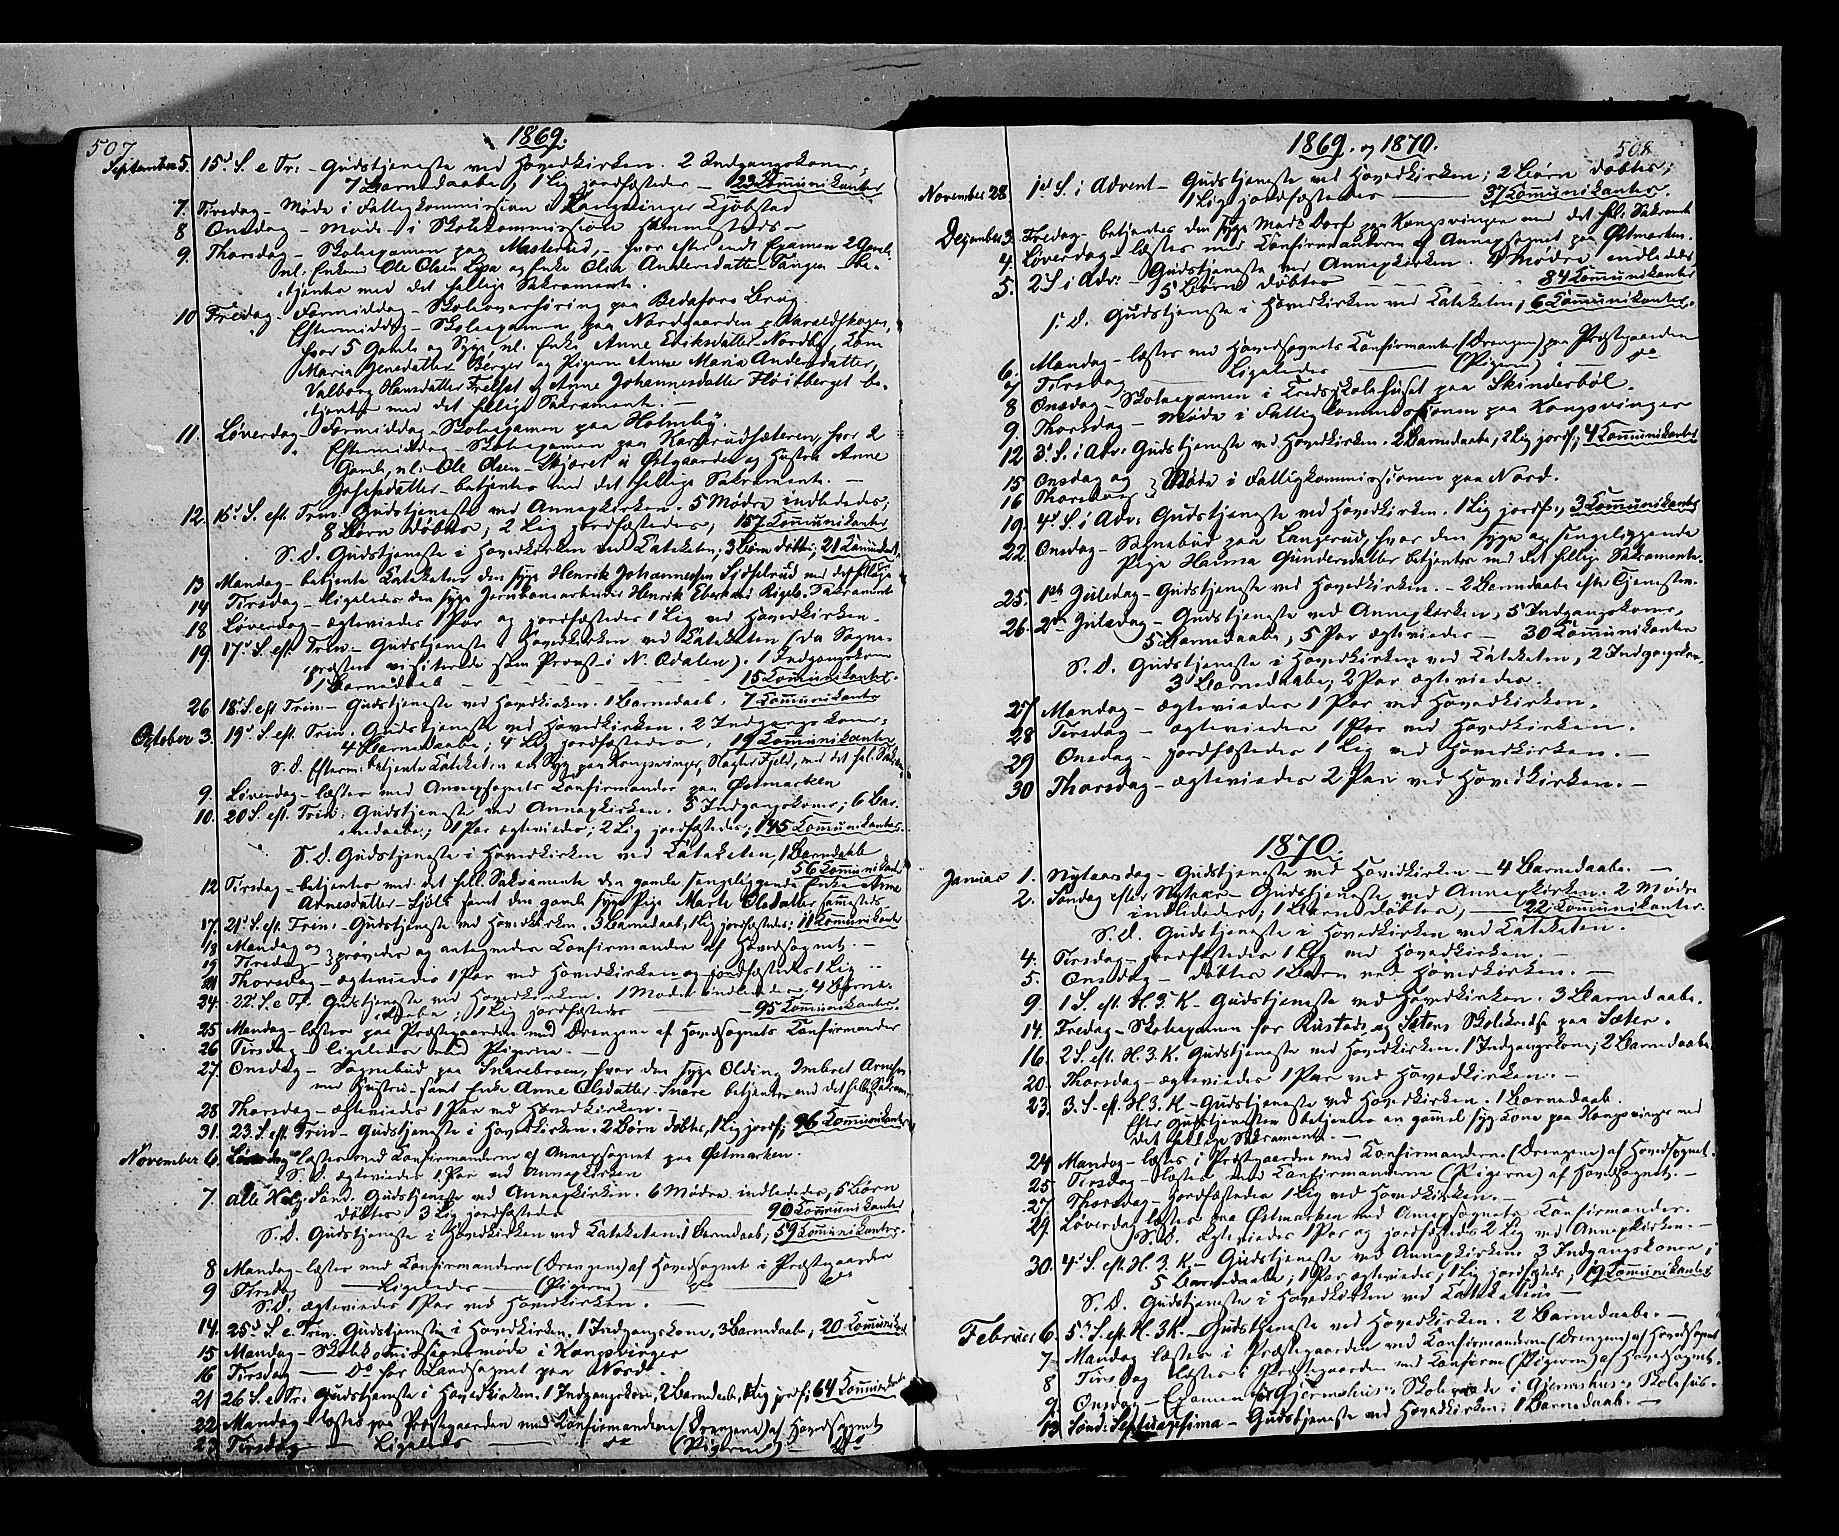 507
1869.
September 5. 15d S. e Tr: Gudstjeneste ved Hovedkirken. 2 Indgangskoner,
7 Barnedaab, 1 Lig jordfæstedes — 23 Communikanter
7. Tirsdag – Møde i Fattigkommission i Kongsvinger Kjøbstad
8 Onsdag – Møde i Skolekommission sammesteds –
9. Thorsdag – Skoleexamen paa Masterud, hvor efter endt Examen 2 Gamle,
nl. Enkem. Ole Olsen Lysa og Enke Olea Andersdatter Tangen be-
tjentes med det hellige Sakramente.
10 Fredag – Formiddag – Skoleoverhøring paa Bedafors Brug.
Eftermiddag – Skoleexamen paa Nordgaarden i Varaldskogen,
hvor 5 Gamle og Syge, nl. Enke Anne Eriksdatter Nordby, Kone
Maria Jensdatter Berger og Pigerne Anne Maria Andersdatter,
Valborg Hansdatter og Anne Johannesdatter Fløitberget be-
tjentes med det hellige Sakramente. –
11. Løverdag – Formiddag – Skoleexamen paa Holmby.
Eftermiddag – Skoleexamen paa Kaxrudsæteren, hvor 2
Gamle, nl. Ole Olsen Skjæret i Østgaarden og Hustru Anne
Josefsdatter – betjentes med det hellige Sakramente. –
12. 16d S. eft. Trin. Gudstjeneste ved Annexkirken. 5 Mødre indledede;
8 Børn døbtes; 2 Lig jordfæstedes; 157 Communikanter
S. D. Gudstjeneste i Hovedkirken ved Kateketen; 3 Børn døbtes; 21 Communikant.
13 Mandag – betjente Kateketen den syge Henrik Johannessen Sidselrud med det hellige
14 Tirsdag – ligeledes den syge Jernbanearbeider Henrik Eberhard Rigels. Sakrament
18 Løverdag – ægteviedes 1 Par og jordfæstedes 1 Lig ved Hovedkirken.
19. 17d S. eft. Trin – Gudstjeneste i Hovedkirken ved Kateketen (da Sogne-
præsten visiterede som Provst i N. Odalen). 1 Indgangskone
1 Barnedaab – – – 15 Communikanter.
26 18d S. eft Trin – Gudstjeneste ved Hovedkirken. 1 Barnedaab. 7 Communikanter
October 3. 19d S. eft. Trin. Gudstjeneste ved Hovedkirken. 2 Indgangskoner;
4 Barnedaabe; 4 Lig jordfæstedes. 19 Communikanter
S. D. Efterm: betjente Kateketen en Syg paa Kongsvinger, Slagter Fjeld, med det hel. Sakram.
9. Løverdag – læstes med Annexsognets Confirmander paa Østmarken
10. 20 S. eft. Trin: Gudstjeneste ved Annexkirken. 5 Indgangskoner; 6 Bar-
nedaabe; 1 Par ægteviedes; 2 Lig jordfæstedes; 145 Communikanter.
S. D. Gudstjeneste i Hovedkirken ved Kateketen, 1 Barnedaab
56 Communikant.
12 Tirsdag – betjentes med det hell. Sakramente den gamle sengeliggende Enke Anne
Arnesdatter samt den gamle syge Pige Marte Olsdatter sammesteds.
17. 21d S. eft. Trin: – Gudstjeneste ved Hovedkirken. 3 Barnedaab, 1 Lig jordfæstedes; 11 Communikanter
18 Mandag og
19 Tirsdag – } prøvedes og antegnedes Confirmander af Hovedsognet. –
21 Thorsdag – ægteviedes 1 Par ved Hovedkirken og jordfæstedes 1 Lig –
24. 22d S. e Tr. Gudstjeneste ved Hovedkirken. 1 Moder indlededes 4 Barne-
daabe; 1 Lig jordfæstedes – 95 Communikanter.
25 Mandag – læstes paa Præstegaarden med Drengene af Hovedsognets Confirmander
26 Tirsdag – ligeledes med Pigerne. –
27. Onsdag – Sognebud paa Snarebroen, hvor den syge Olding Imbret Arnesen
med Hustru – samt Enke Anne Olsdatter Snare betjentes med det hellige Sakram.
28 Thorsdag – ægteviedes 1 Par ved Hovedkirken. –
31. 23. S. eft. Trin – Gudstjeneste i Hovedkirken. 2 Børn døbtes, 1 Lig jordf.; 96 Communikanter
November 6. Løverdag læstes med Confirmanderne af Annexsognet paa Østmarken.
S. D. ægteviedes 1 Par ved Annexkirken
7 Alle Helg. Sønd. Gudstjeneste ved Annexkirken. 6 Mødre indledede, 5 Børn
døbtes 3 Lig jordfæstedes 90 Communikanter
S. D. Gudstjeneste i Hovedkirken ved Kateketen. 1 Barnedaab; 59 Communikanter.
8 Mandag – læstes med Confirmanderne (Drengene) af Hovedsognet i Præstegaarden
9 Tirsdag — Ligeledes — (Pigerne) — do — do
S. D. ægteviedes 1 Par ved Hovedkirken. –
14. 25d S. e. Trin. Gudstjeneste i Hovedkirken. 1 Indgangskone, 3 Barnedaabe, 20 Communikant
15 Mandag – Skolekommissionsmøde i Kongsvinger
16 Tirsdag — Do for Landsognet paa Nord.
21 26 S. e Tr. Gudstjeneste i Hovedkirken. 1 Indgangskone, 2 Barnedaabe, 1 Lig jordf.; 64 Communikant
22 Mandag – læstes paa Præstegaarden med Confirmanderne (Drengene) af Hovedsognet
23 Tirsdag — Ligeledes — do (Pigerne) — do
508
1869. og 1870.
November 28. 1ste S. i Advent – Gudstjeneste ved Hovedkirken; 2 Børn døbtes;
1 Lig jordfæstedes — 37 Communikanter.
December 3. Fredag – betjentes den syge Mads Dorf paa Kongsvinger med det hel. Sakrament
4. Løverdag – læstes med Confirmanderne af Annexsognet paa Østmarken.
5. 2 S. i Adv: – Gudstjeneste ved Annexkirken. 4 Mødre indledede
5 Børn døbtes — 84 Communikanter
S. D. Gudstjeneste i Hovedkirken ved Kateketen, 6 Communikanter.
6. Mandag – læstes med Hovedsognets Confirmanter (Drengene) paa Præstegaarden
7 Tirsdag — Ligeledes — (Pigerne). – do
8 Onsdag – Skoleexamen i Kredsskolehuset paa Skinderbøl.
9. Thorsdag – Møde i Fattigkommissionen paa Kongsvinger
12 3d S. i Adv: Gudstjeneste ved Hovedkirken. 2 Barnedaabe, 2 Lig jordf.; 4 Communikanter
15 Onsdag og
16 Thorsdag } Møde i Fattigkommissionen paa Nord.
19. 4d S. i Adv: Gudstjeneste ved Hovedkirken. 1 Lig jordf.; 3 Communikanter
22. Onsdag – Sognebud paa Langerud, hvor den syge og sengeliggende
Pige Hanna Gundersdatter betjentes med det hellige Sakramente.
25. 1ste Juledag – Gudstjeneste ved Hovedkirken. – 2 Barnedaabe efter Tjenesten.
26. 2den Juledag – Gudstjeneste ved Annexkirken; 5 Indgangskoner,
5 Barnedaabe, 5 Par ægteviedes – 30 Communikanter
S. D. Gudstjeneste i Hovedkirken ved Kateketen, 2 Indgangskon.,
3 Barnedaabe; 2 Par ægteviedes.
27 Mandag – ægteviedes 1 Par ved Hovedkirken.
28 Tirsdag – ægteviedes 1 Par ved Hovedkirken.
29 Onsdag – jordfæstedes 1 Lig ved Hovedkirken. –
30 Thorsdag – ægteviedes 2 Par ved Hovedkirken. –
1870.
Januar 1. Nytaarsdag – Gudstjeneste ved Hovedkirken – 4 Barnedaabe. –
2. Søndag efter Nytaar – Gudstjeneste ved Annexkirken. 2 Mødre
indledede; 1 Barn døbtes, — 22 Communikanter.
S. D. Gudstjeneste i Hovedkirken ved Kateketen.
4. Tirsdag – jordfæstedes 1 Lig ved Hovedkirken. –
5. Onsdag – døbtes 1 Barn ved Hovedkirken. –
9 1 S. eft. H. 3 K – Gudstjeneste ved Hovedkirken. 3 Barnedaabe.
14. Fredag – Skoleexamen for Rustads og Sæters Skolekredse paa Sæter.
16. 2 S. eft. H. 3. K. Gudstjeneste ved Hovedkirken. 1 Indgangskone; 2 Barnedaabe.
20. Thorsdag – ægteviedes 1 Par ved Hovedkirken. –
23. 3. S. eft. H. 3. K – Gudstjeneste ved Hovedkirken. 1 Barnedaab.
Efter Gudstjenesten betjentes en gammel syg Kone paa Kongsvinger med
det hellige Sakramente. –
24 Mandag – læstes i Præstegaarden med Confirmanderne (Drengene) af Hovedsognet.
25 Tirsdag – læstes med Confirmanderne (Pigerne) af Hovedsognet. –
27 Thorsdag – jordfæstedes 1 Lig ved Hovedkirken. –
29. Løverdag læstes paa Østmarken med Annexsognets Confirmander.
S. D. ægteviedes 1 Par og jordfæstedes 2 Lig ved Annexkirken. –
30. 4d S. eft H. 3. K – Gudstjeneste ved Annexkirken. 3 Indgangskoner,
5 Barnedaabe; 1 Par ægteviedes; 1 Lig jordfæstedes; 19 Communikanter
S. D. Gudstjeneste i Hovedkirken ved Kateketen –
Februar 6. 5te S. eft. H. 3 K. – Gudstjeneste ved Hovedkirken. 2 Barnedaabe. –
7 Mandag læstes i Præstegaarden ved Confirmanderne (Drengene) af Hovedsognet
8 Tirsdag læstes i Præstegaarden med Confirm. (Pigerne) af Hovedsognet.
9. Onsdag – Examen for Gjermshus's Skolekreds i Gjermshus's Skolehus.
13. Sønd: Septuagesima – Gudstjeneste ved Hovedkirken; 1 Barnedaab. –